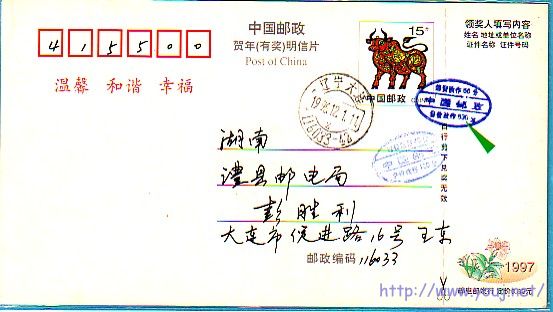 415500
温馨 和谐 幸福
中国邮政
贺年(有奖)明信片
Post of China
15分
中国邮政
领奖人填写内容
姓名 地址或单位名称
证件名称 证件号码
中国邮政
辽宁大连
116033
湖南
澧县邮电局
彭胜利
大连市促进路16号 王东
邮政编码 116033
自行剪下兑奖无效
1997